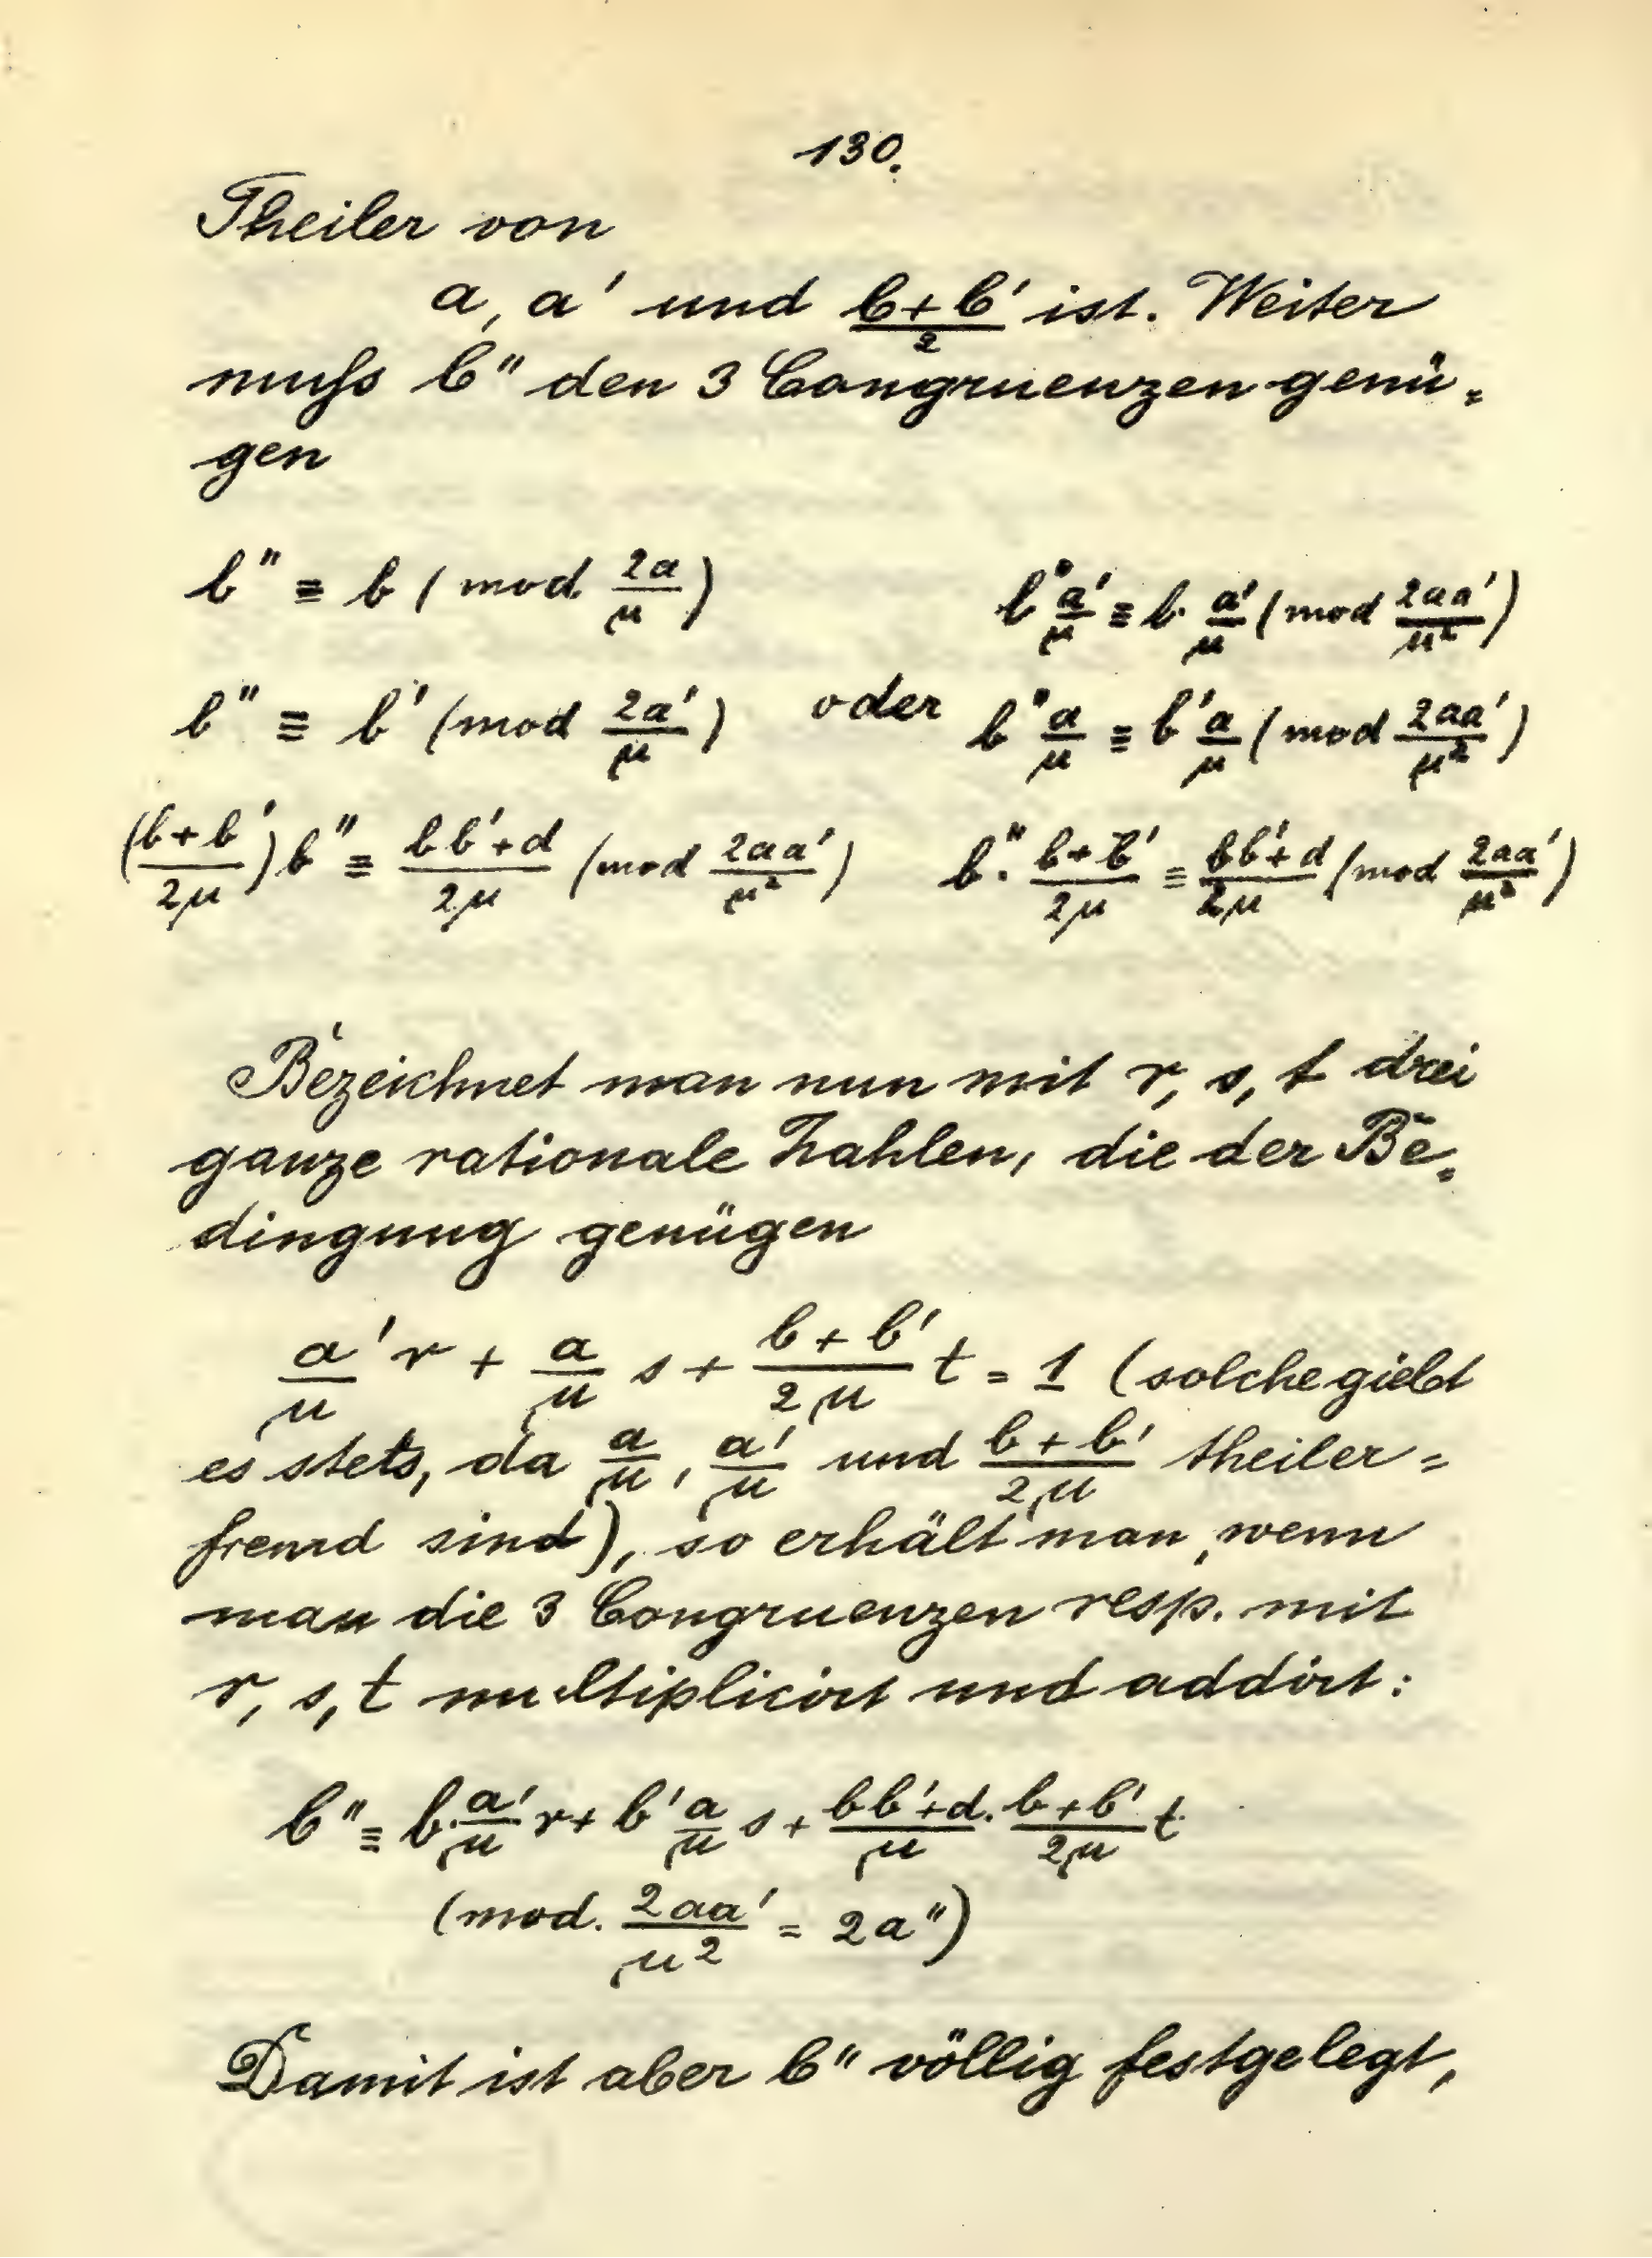 130.
Theiler von
a, a' und $\frac{b+b'}{2}$ ist. Weiter
muſs b'' den 3 Congruenzen genü=
gen
$b'' \equiv b \ (\text{mod.} \frac{2a}{\mu})$ $b'' \frac{a'}{\mu} \equiv b \cdot \frac{a'}{\mu} (\text{mod} \frac{2aa'}{\mu^2})$
$b'' \equiv b' (\text{mod} \frac{2a'}{\mu})$ oder $b'' \frac{a}{\mu} \equiv b' \frac{a}{\mu} (\text{mod} \frac{2aa'}{\mu^2})$
$(\frac{b+b'}{2\mu}) b'' \equiv \frac{bb'+d}{2\mu} (\text{mod} \frac{2aa'}{\mu^2})$ $b'' \cdot \frac{b+b'}{2\mu} \equiv \frac{bb'+d}{2\mu} (\text{mod} \frac{2aa'}{\mu^2})$
Bezeichnet man nun mit r, s, t drei
ganze rationale Zahlen, die der Be=
dingung genügen
$\frac{a'}{\mu} r + \frac{a}{\mu} s + \frac{b+b'}{2\mu} t = 1$ (solche giebt
es stets, da $\frac{a}{\mu}, \frac{a'}{\mu}$ und $\frac{b+b'}{2\mu}$ theiler=
fremd sind), so erhält man, wenn
man die 3 Congruenzen resp. mit
r, s, t multiplicirt und addirt:
$b'' \equiv b \cdot \frac{a'}{\mu} r + b' \frac{a}{\mu} s + \frac{bb'+d}{\mu} \cdot \frac{b+b'}{2\mu} t$
$(\text{mod.} \frac{2aa'}{\mu^2} = 2a'')$
Damit ist aber b'' völlig festgelegt,